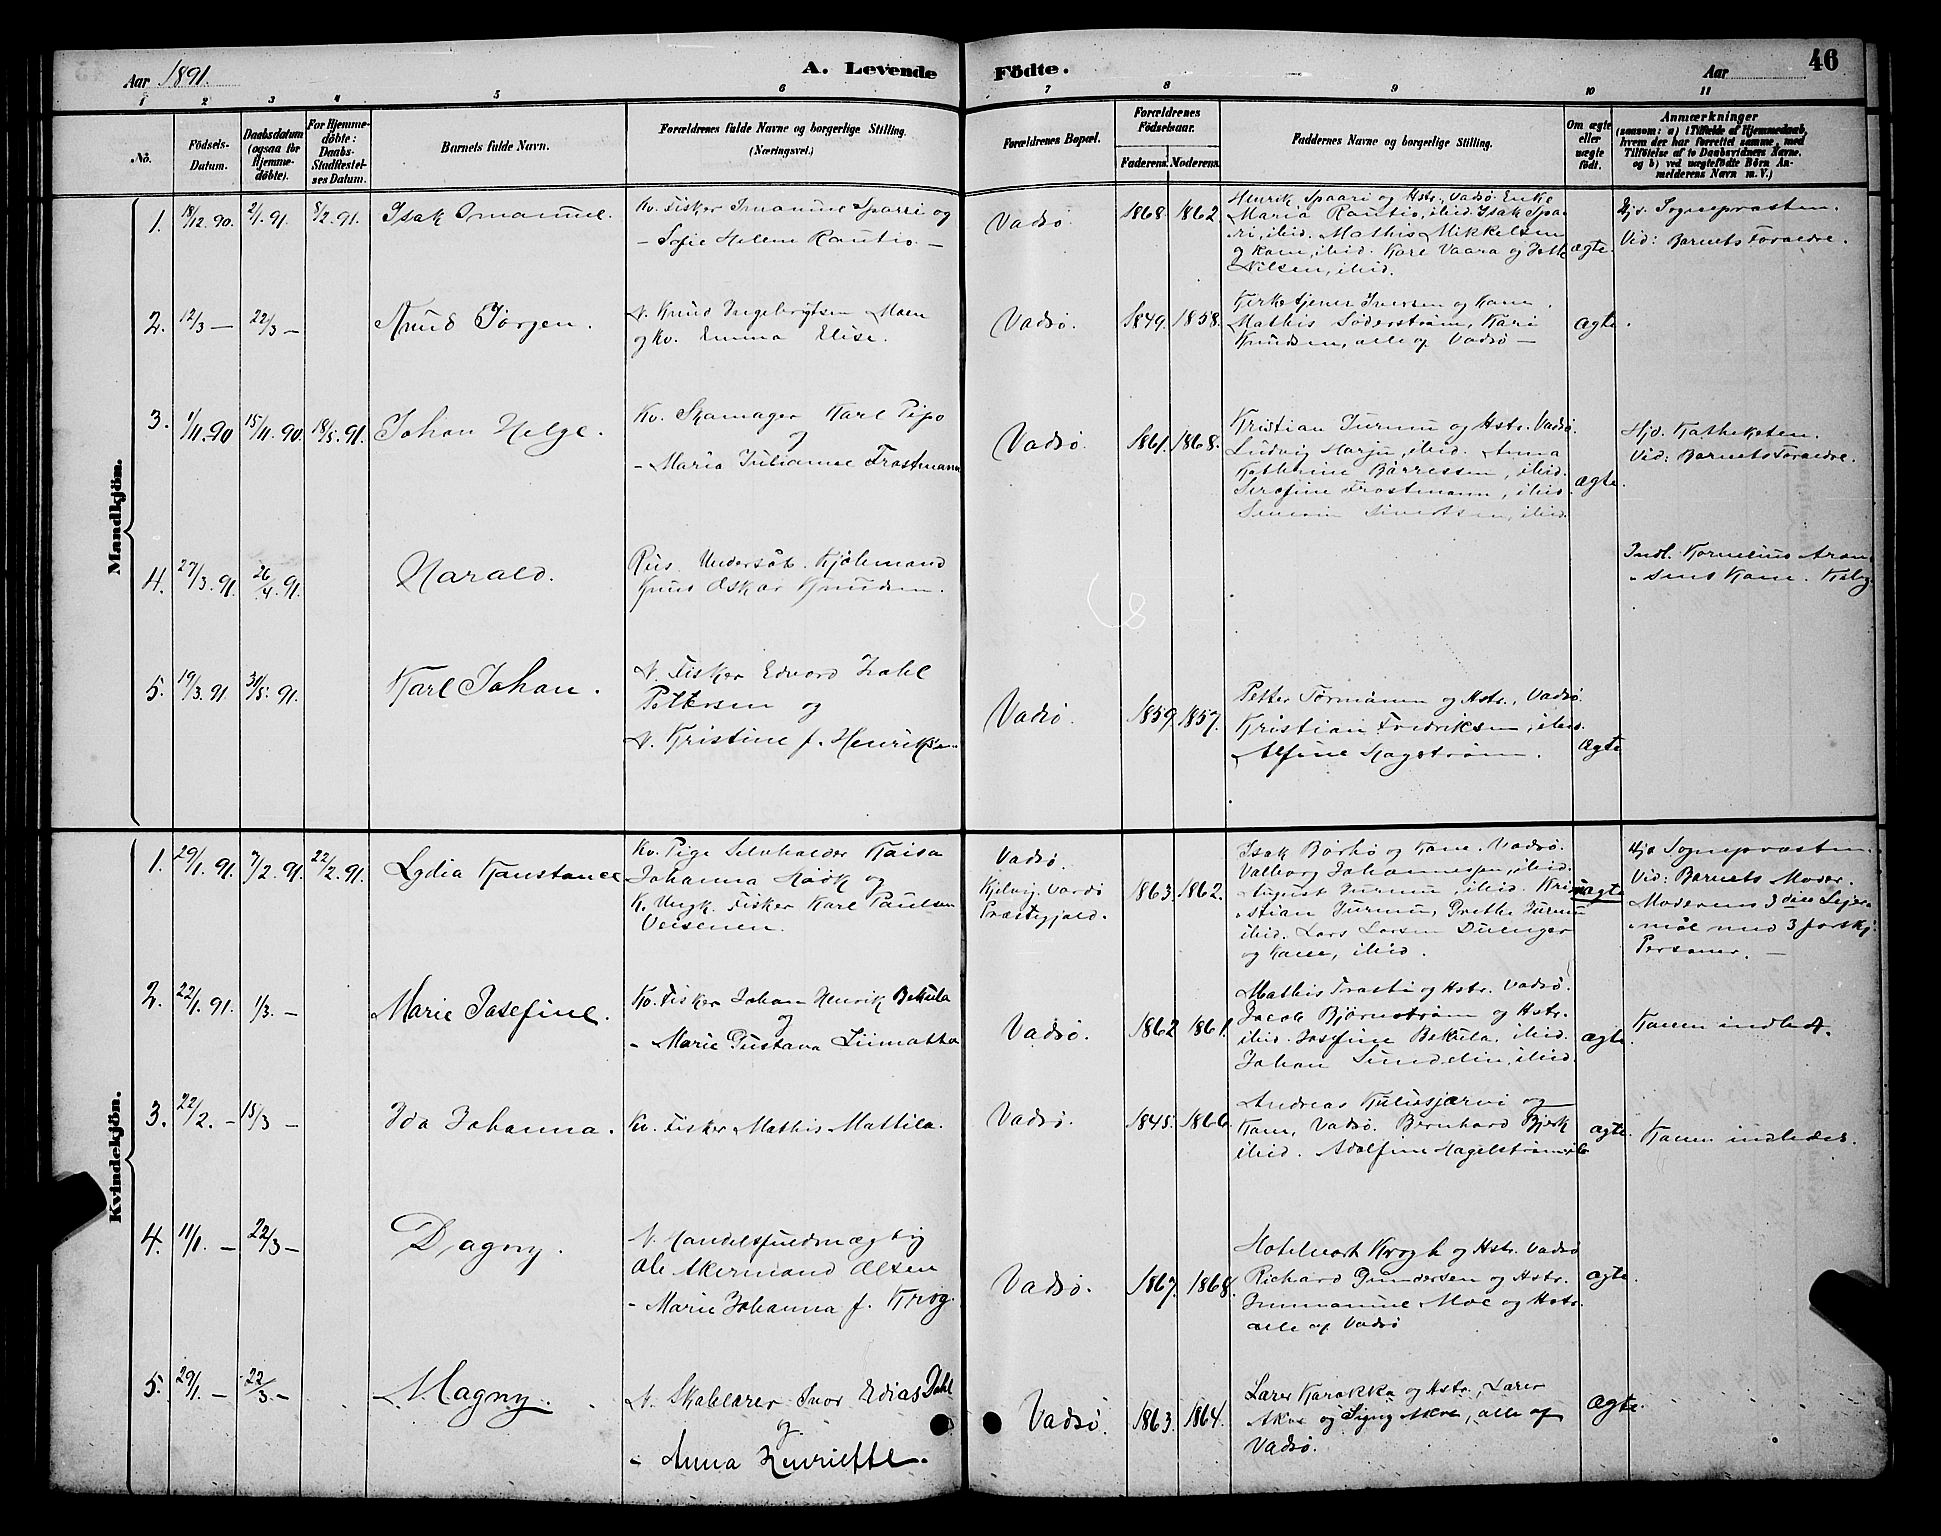 Aar 1891. A. Levende Födte. Aar 46
1 2 3 4 5 6 7 8 9 10 11
No. Födsels-Datum. Daabsdatum (ogsaa for Hjemmedöbte). For Hjemmedöbte: Daabs-Stadfestelses Datum. Barnets fulde Navn. Forældrenes fulde Navne og borgerlige Stilling. (Næringsvei.) Forældrenes Bopæl. Forældrenes Födselsaar. Faderens. Moderens. Faddernes Navne og borgerlige Stilling. Om ægte eller uægte födt. Anmærkninger (saasom: a) i Tilfælde af Hjemmedaab, hvem der har forrettet samme, med Tilföielse af to Daabsvidners Navne, og b) ved uægtefödte Börn Anmelderens Navn m. V.)
Mandkjön.
1. 18/12.90. 2/1.91. 8/2.91. Isak Imanuel.
Kv. Fisker Imanuel Sparri og
– Sofie Helene Rautio –
Vadsø. 1868. 1862.
Henrik Spaari og Hstr., Vadsø. Enke
Maria Rautio, ibid. Isak Spa-
ri, ibid. Mathis Mikkelsen
og Kone, ibid. Karl Vaara og
Nilsen, ibid.
ægte.
Hjd. Sognepræsten.
Vid: Barnets Forældre.
2. 12/3 – 22/3 – Knud Jørgen.
N. Knud Ingebrigtsen Moen
og Kv. Emma Elise.
Vadsø. 1849. 1858.
Kirketjener Iversen og Kone.
Mathis Söderström, Kari
Knudsen, alle af Vadsø –
ægte.
3. 1/11.90 15/11.90 18/5.91. Johan Helge.
Kv. Skomager Karl Pipo
og
– Maria Julianne Frostmann
Vadsø. 1861. 1868.
Kristian Jurmu og Hstr. Vadsø.
Ludvig Harju, ibid. Anna
Katherine Börressen, ibid.
Serafine Frostmann, ibid.
Severin Sivertsen, ibid.
ægte.
Hjd. Katheketen.
Vid: Barnets Forældre.
4. 27/3.91. 26/4.91. Harald.
Rus. Undersåt. Kjöbmand
Knud Oskar Knudsen.
Indl. Kornelius Aron-
sens Kone.
5. 19/3.91. 31/5.91. Karl Johan.
N. Fisker Edvard Zahl
Pettersen og
N. Kristine f. Henriksen
Vadsø. 1859. 1857.
Petter Törmänen og Hstr., Vadsø.
Kristian Fredriksen, ibid.
Alfine Hagström.
ægte
Kvindekjön.
1. 29/1.91. 7/2.91. 22/2.91. Lydia Konstance
Kv. Pige Selvholder Kaisa
Johanna Höök og
K. Ungk. Fisker Karl Paulsen
Veisenen.
Vadsø.
Kjelvig, Vardø
Præstegjæld.
1863. 1862.
Isak Børhö og Kone. Vadsø.
Valborg Johannessen, ibid.
August Jurmu, ibid. Kri-
stian Jurmu, Grethe Jurmu
ibid. Lars Larsen
og Kone, ibid.
uægte
Hjd Sognepræsten.
Vid: Barnets Moder.
Moderens 3die Lejer-
mål med 3 forskj.
Personer. –
2. 22/1.91. 1/3. – Marie Josefine.
Kv. Fisker Johan Henrik Bekula
og
– Marie Gustava Liimatta
Vadsø. 1862 1861.
Mathis Trasti og Hstr. Vadsø.
Jacob Björnström og Hstr.
ibid. Josefine Bekula, ibid.
Johan Sundelin, ibid.
ægte
Konen indledt.
3. 22/2. – 15/3 – Ida Johanna.
Kv. Fisker Mathis Mattila.
Vadsø. 1845. 1866.
Andreas Kuliusjærvi og
Kone, Vadsø. Bernhard Bjerk
ibid. Adolfine Hagelström, ib
ægte.
Konen indledes.
4. 11/1. – 22/3 – Dagny.
N. Handelsfuldmægtig
Ole Akermand Olsen
– Marie Johanna f. Krog.
Vadsø. 1867. 1868.
Hotelvært Krogh og Hstr. Vadsø
Richard Gundersen og Hstr.
Immanuel Moe og Hstr.
alle af Vadsø
ægte.
5. 29/1. – 22/3 – Magny.
N. Skolelærer Ivar Edias Dahl
og
– Anna Henriette.
Vadsø. 1863. 1864.
Lærer Karakka og Hstr., Lærer
Akre og Signy Akre, alle af
Vadsø.
ægte.